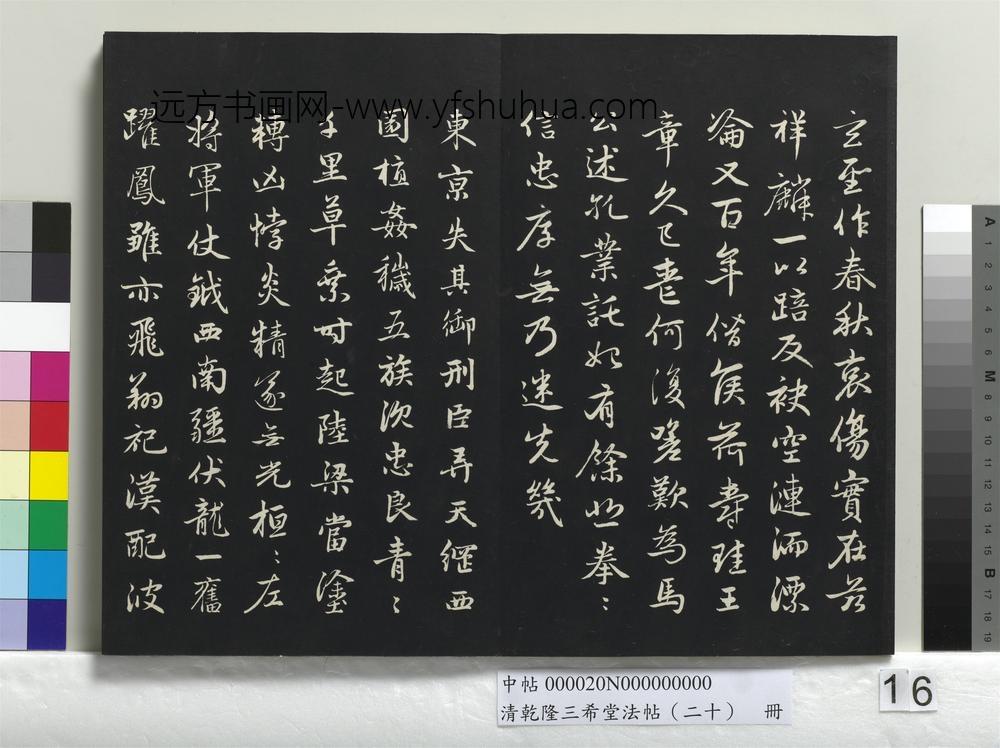 玄聖作春秋哀傷實在茲
祥麟一以踣反袂空漣洏漂
淪又百年僭侯荷爵珪王
章久已喪何復嗟歎為馬
公述孔業託始有餘悲拳〻
信忠厚無乃迷先幾
東京失其御刑臣弄天綱西
園植姦穢五族沉忠良青〻
千里草乘時起陸梁當塗
轉凶悖炎精遂無光桓〻左
將軍仗鉞西南疆伏龍一奮
躍鳳雛亦飛翔祀漢配彼
远方书画网-www.yfshuhua.com
中帖 000020N000000000
清乾隆三希堂法帖（二十） 冊
16
A 1 2 3 4 5 6 M 8 9 10 11 12 13 14 15 B 17 18 19